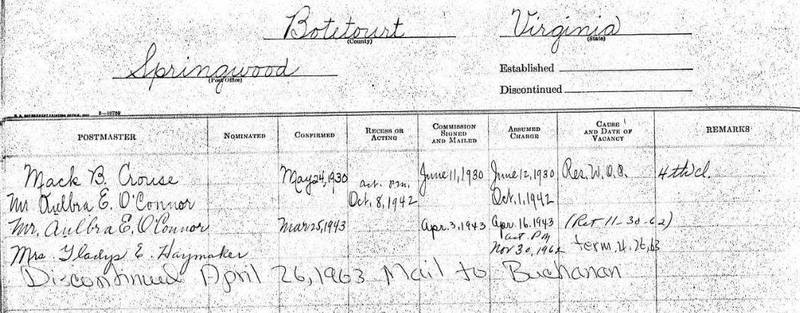 Botetourt Virginia
(County) (State)
Springwood Established
(Post Office) Discontinued
POSTMASTER NOMINATED CONFIRMED RECESS OR ACTING COMMISSION SIGNED AND MAILED ASSUMED CHARGE CAUSE AND DATE OF VACANCY REMARKS
Mack B. Crouse May 24, 1930 June 11, 1930 June 12, 1930 Res. W.O.O. 4th cl.
Mr Aulbra E. O'Connor act. P.M. Oct. 8, 1942 Oct. 1, 1942
Mr. Aulbra E. O'Connor Mar 25, 1943 Apr. 3, 1943 Apr. 16, 1943 (Ret 11-30-62)
Mrs. Gladys E. Haymaker act. P M Nov 30, 1962 term. 4. 26, 63
Discontinued April 26, 1963 Mail to Buchanan